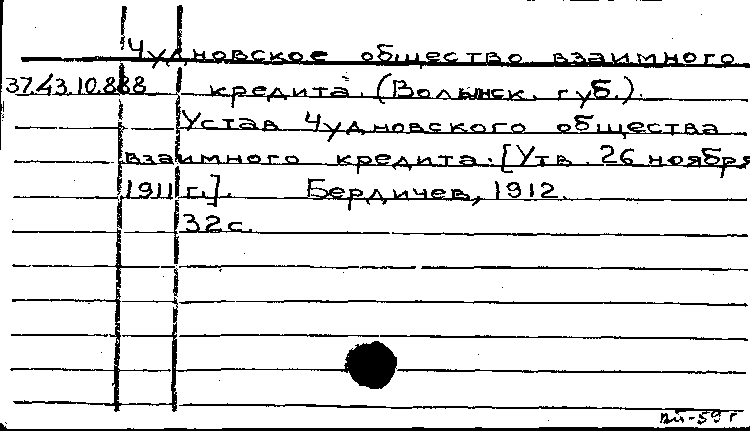 Чудновское общество взаимного
37.43.10.888 кредита. (Волынск. губ.).
Устав Чудновского общества
взаимного кредита. [Утв. 26 ноября
1911 г.]. Бердичев, 1912.
32 с.